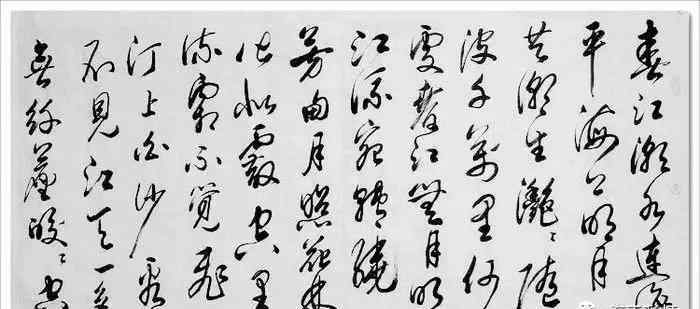 春江潮水连海
平海上明月
共潮生滟滟随
波千万里何
处春江无月明
江流宛转绕
芳甸月照花林
皆似霰空里
流霜不觉飞
汀上白沙看
不见江天一色
无纤尘皎皎空